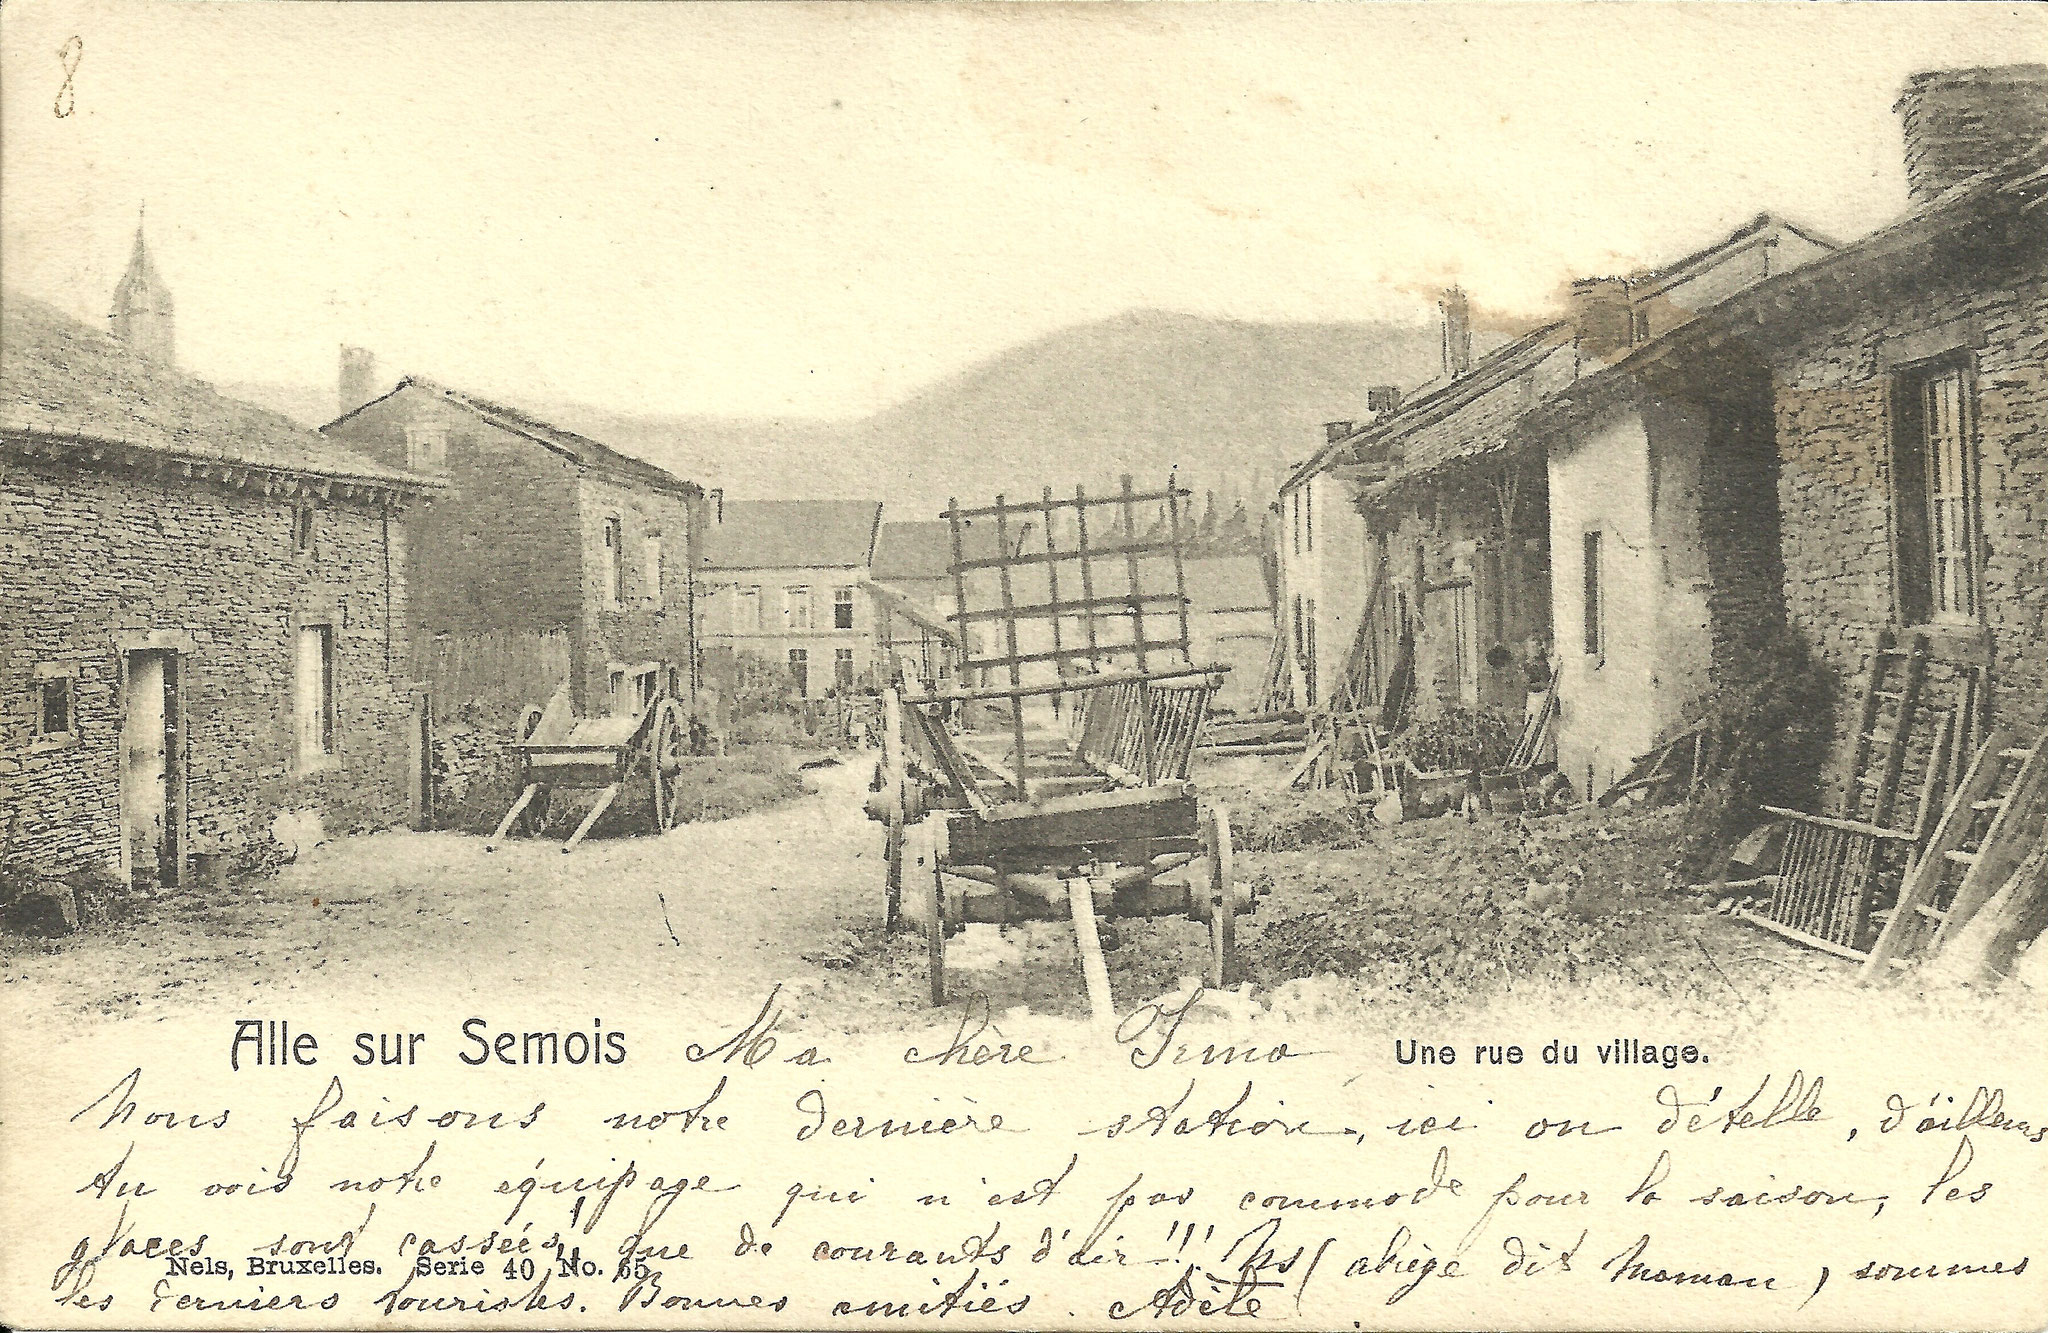 8
Alle sur Semois Ma chère Irma Une rue du village.
Nous faisons notre dernière station, ici on dételle, d'ailleurs
tu vois notre équipage qui n'est pas commode pour la saison, les
glaces sont cassées, que de courants d'air!!! Ns (abrège dit Maman) sommes
Nels, Bruxelles. Serie 40 No. 65
les derniers touristes. Bonnes amitiés. Adèle